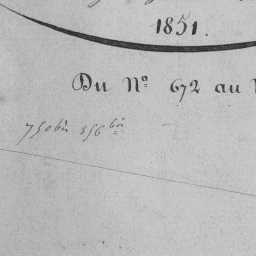 1851.
Du Nº 672 au
750bis 856 bis